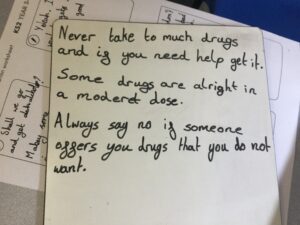 KS2 YEAR
Never take to much drugs
and ig you need help get it.
Some drugs are alright in
a moderet dose.
Always say no ig someone
oggers you drugs that you do not
want.
Shall we go
and get